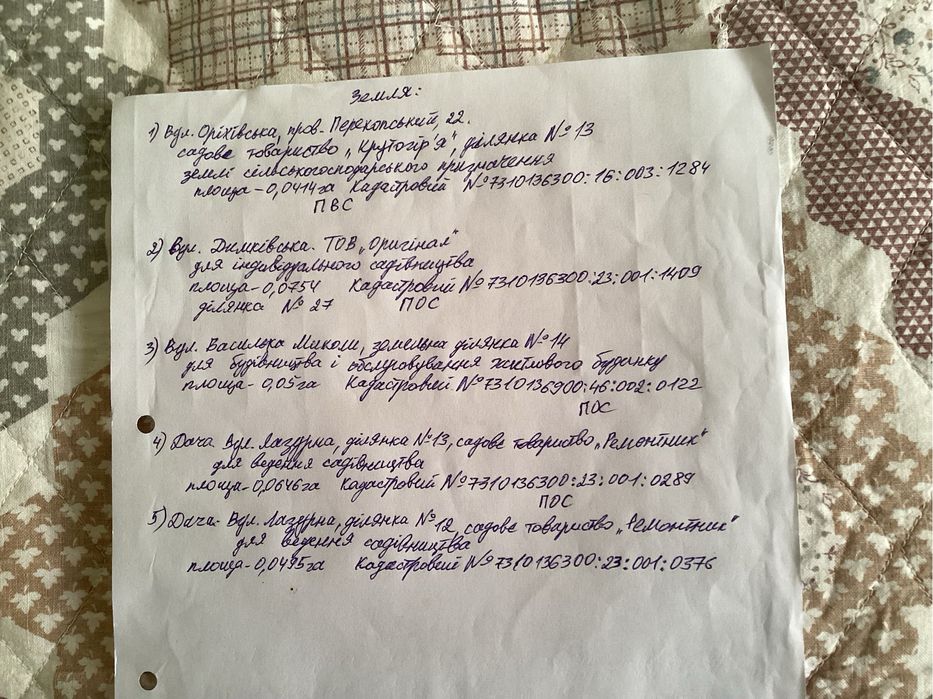 Земля:
1) Вул. Оріхівська, пров. Перекопський, 22.
садове товариство „Крутогір'я", ділянка №13
землі сільськогосподарського призначення
площа - 0,0414га Кадастровий №7310136300:16:003:1284
ПВС
2) Вул. Димківська. ТОВ „Оригінал"
для індивідуального садівництва
площа - 0,0754 Кадастровий №7310136300:23:001:1409
ділянка № 27 ПОС
3) Вул. Василька Миколи, земельна ділянка №14
для будівництва і обслуговування житлового будинку
площа - 0,05га Кадастровий №7310136900:46:002:0122
ПОС
4) Дача. Вул. Лазурна, ділянка №13, садове товариство „Ремонтник"
для ведення садівництва
площа - 0,0646га Кадастровий №7310136300:23:001:0289
ПОС
5) Дача. Вул. Лазурна, ділянка №12, садове товариство „Ремонтник"
для ведення садівництва
площа - 0,0495га Кадастровий №7310136300:23:001:0376